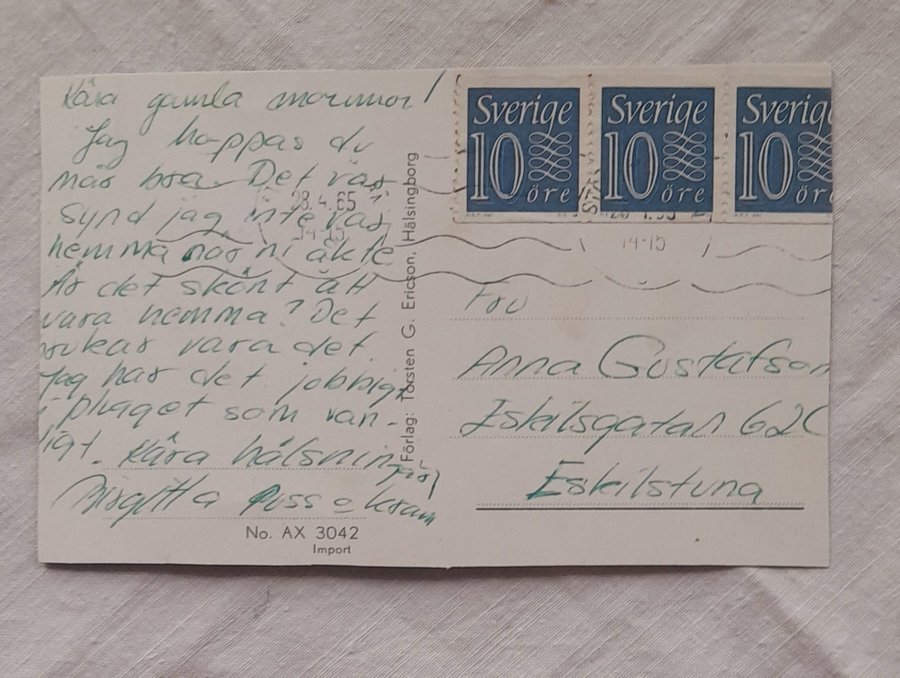 Kära gamla mormor!
Jag hoppas du
mår bra. Det var
synd jag inte var
hemma när ni åkte
Är det skönt att
vara hemma? Det
brukar vara det.
Jag har det jobbigt
i plugget som van-
ligt. Kära hälsningar
Birgitta Puss o kram
No. AX 3042
Import
Förlag: Torsten G. Ericson, Hälsingborg
28.4.65
Sverige
10
öre
Sverige
10
öre
Sverige
10
öre
14-15
Fru
Anna Gustafson
Eskilsgatan 62C
Eskilstuna